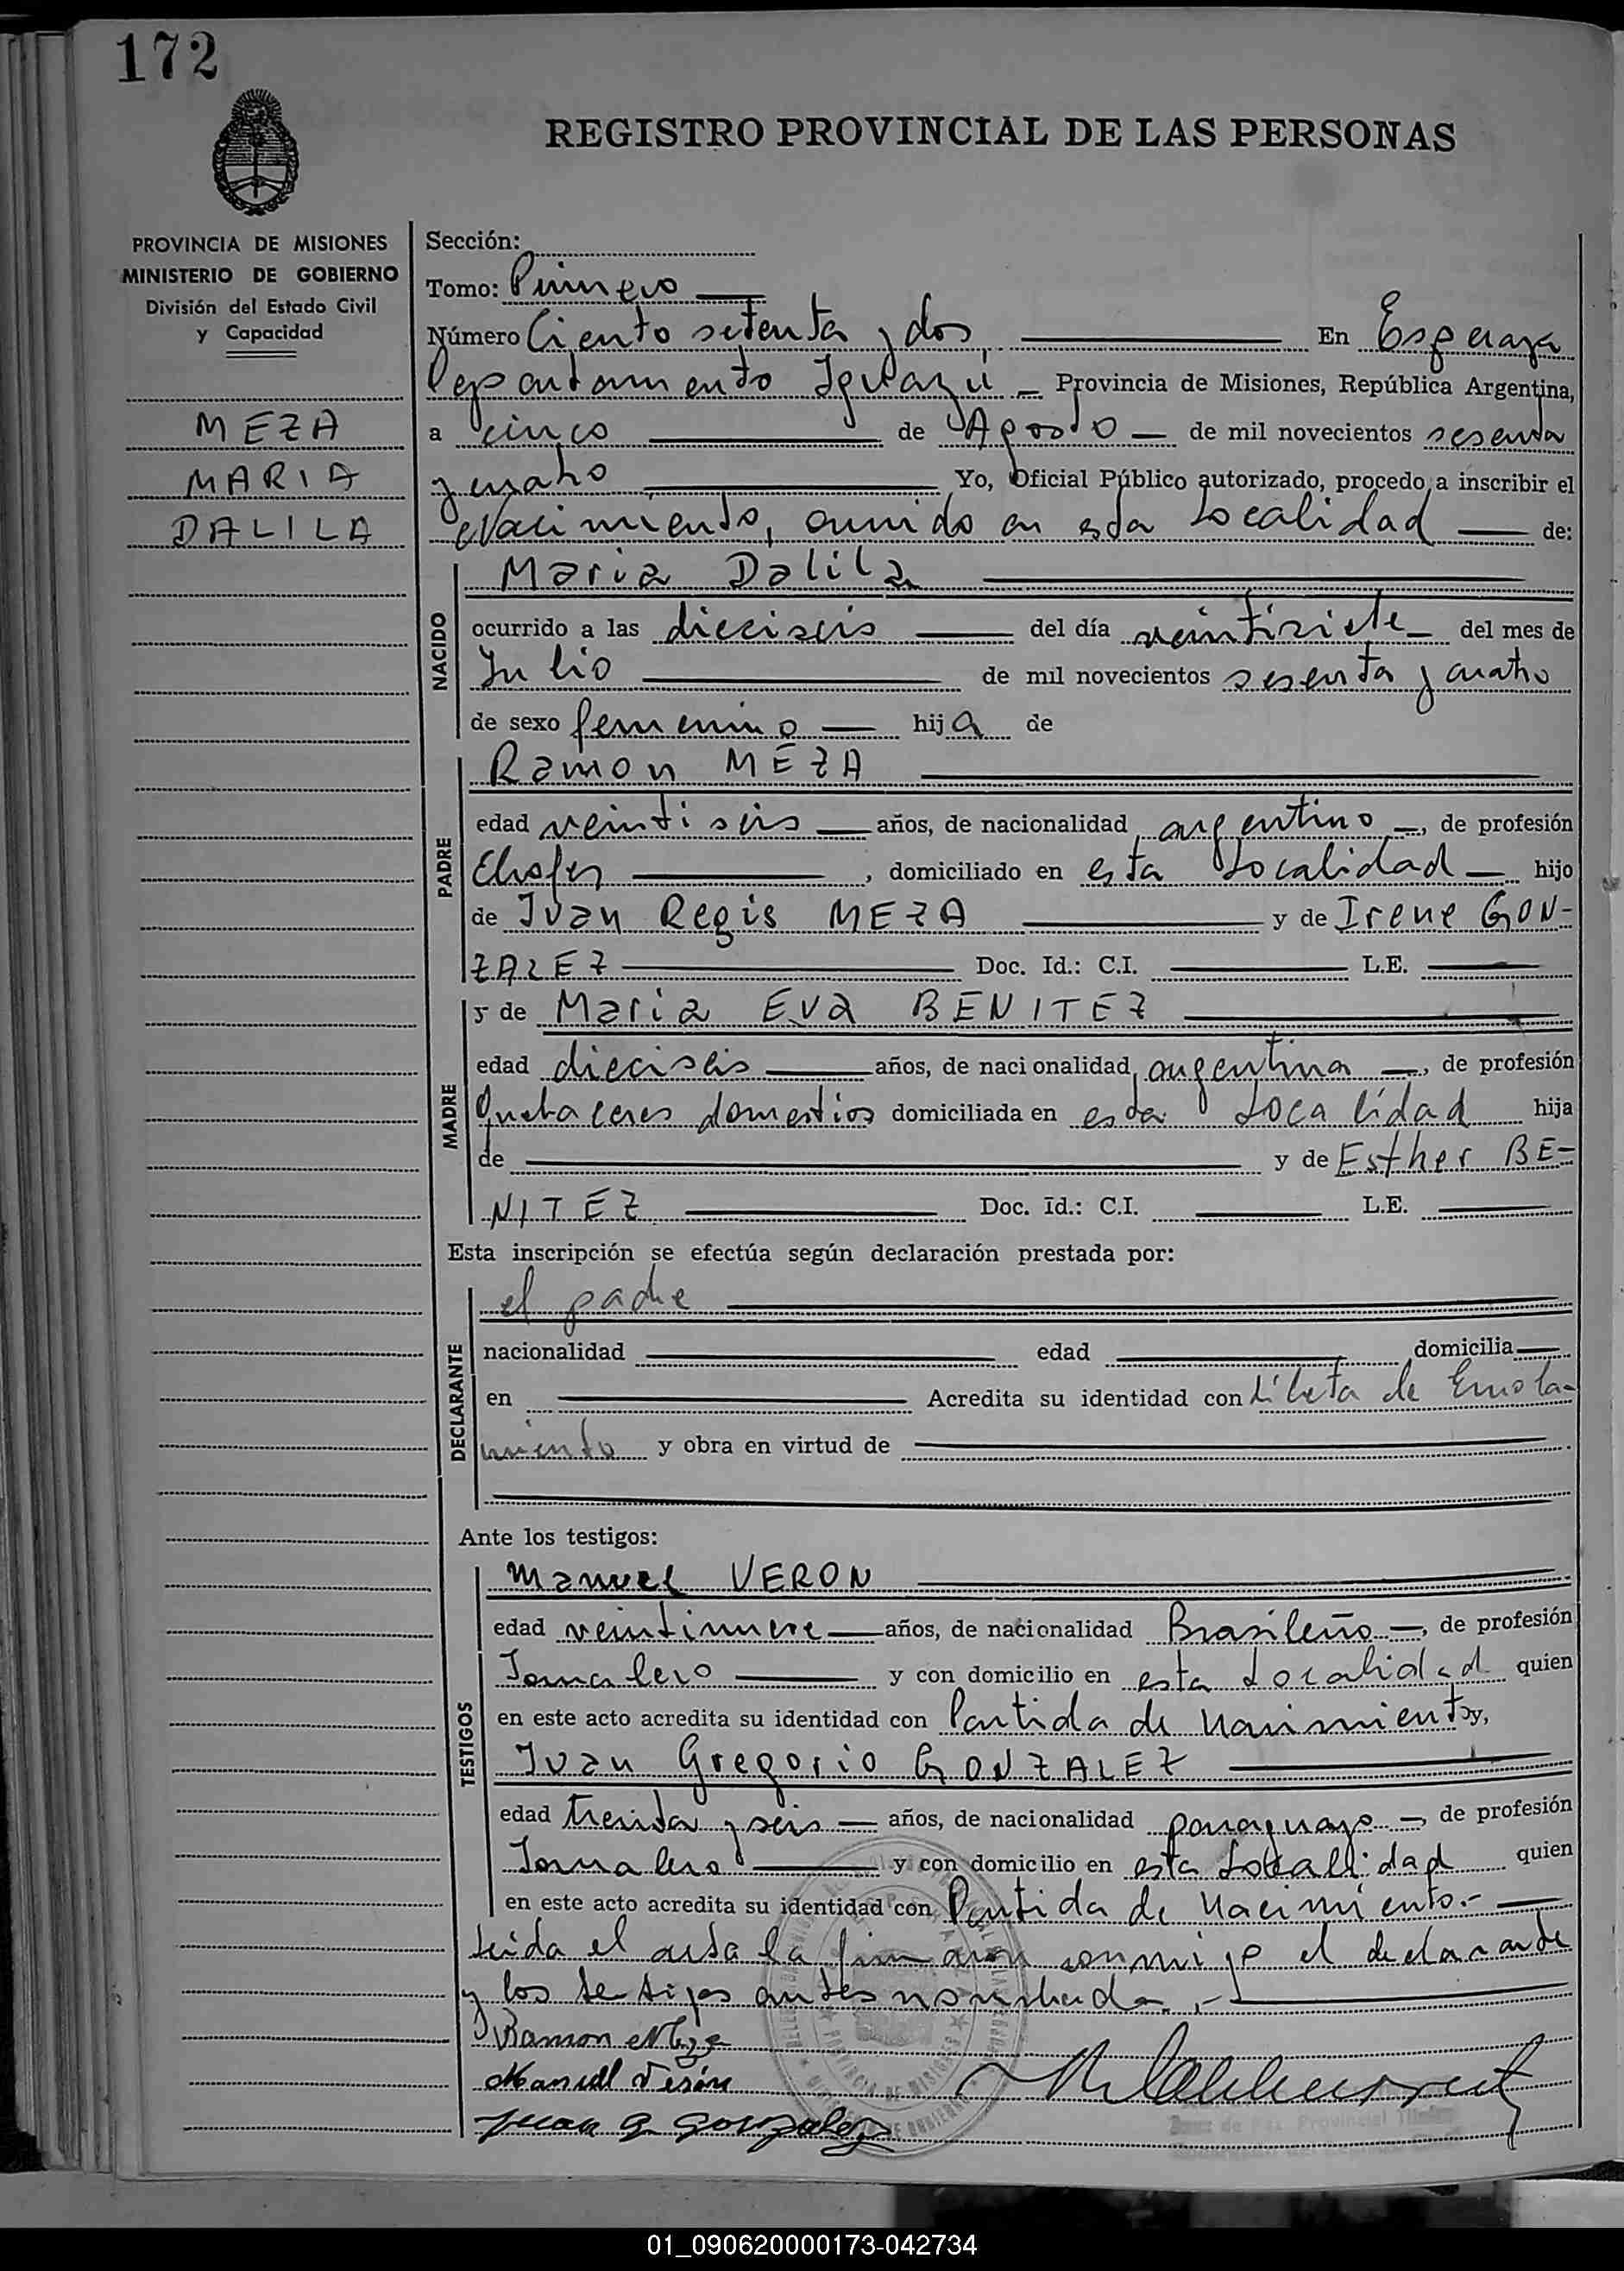 172
REGISTRO PROVINCIAL DE LAS PERSONAS
PROVINCIA DE MISIONES
MINISTERIO DE GOBIERNO
División del Estado Civil
y Capacidad
MEZA
MARIA
DALILA
Sección:
Tomo: Primero
Número Ciento setenta y dos En Esperaza
Departamento Iguazú Provincia de Misiones, República Argentina,
a cinco de Agosto de mil novecientos sesenta
y cuatro Yo, Oficial Público autorizado, procedo a inscribir el
Nacimiento, ocurrido en esta Localidad de:
NACIDO
Maria Dalila
ocurrido a las dieciseis del día veintisiete del mes de
Julio de mil novecientos sesenta y cuatro
de sexo femenino hija de
PADRE
Ramon MEZA
edad veintiseis años, de nacionalidad argentino, de profesión
Chofer, domiciliado en esta Localidad hijo
de Juan Regis MEZA y de Irene GON-
ZALEZ Doc. Id.: C.I. L.E.
MADRE
y de Maria Eva BENITEZ
edad dieciseis años, de nacionalidad argentina, de profesión
Quehaceres domesticos domiciliada en esta Localidad hija
de y de Esther BE-
NITEZ Doc. Id.: C.I. L.E.
Esta inscripción se efectúa según declaración prestada por:
DECLARANTE
el padre
nacionalidad edad domicilia
en Acredita su identidad con Libreta de Enrola-
miento y obra en virtud de
Ante los testigos:
TESTIGOS
Manuel VERON
edad veintinueve años, de nacionalidad Brasileño, de profesión
Jornalero y con domicilio en esta Localidad quien
en este acto acredita su identidad con Partida de Nacimiento y,
Juan Gregorio GONZALEZ
edad treinta y seis años, de nacionalidad paraguayo, de profesión
Jornalero y con domicilio en esta Localidad quien
en este acto acredita su identidad con Partida de Nacimiento.-
Leida el acta la firmaron conmigo el declarante
y los testigos antes nombrados.-
Ramon Meza
Manuel Verón
Juan G. Gonzalez
PROVINCIA DE MISIONES
01_090620000173-042734